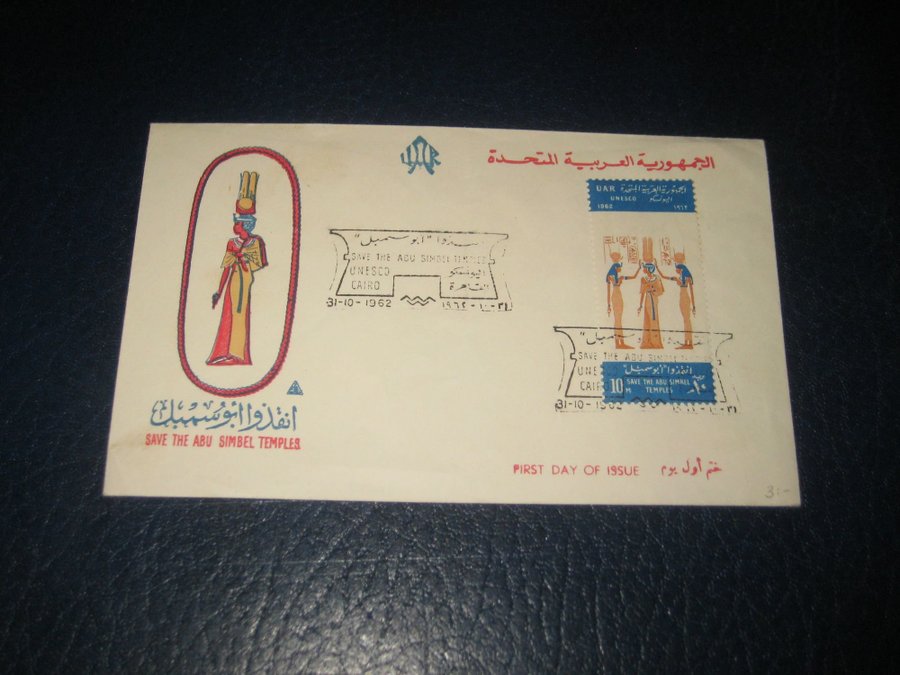 UAR
الجمهورية العربية المتحدة
UAR الجمهورية العربية المتحدة
UNESCO اليونسكو
1962 ١٩٦٢
"أبو سمبل"
SAVE THE ABU SIMBEL TEMPLES
UNESCO اليونسكو
CAIRO القاهرة
31-10-1962 ١٩٦٢-١٠-٣١
"أبو سمبل"
SAVE THE ABU SIMBEL
UNE
CAIR
31-10-1962
انقذوا "أبو سمبل"
10 M SAVE THE ABU SIMBEL TEMPLES ١٠ م
انقذوا ابو سمبل
SAVE THE ABU SIMBEL TEMPLES
FIRST DAY OF ISSUE ختم أول يوم
3:-